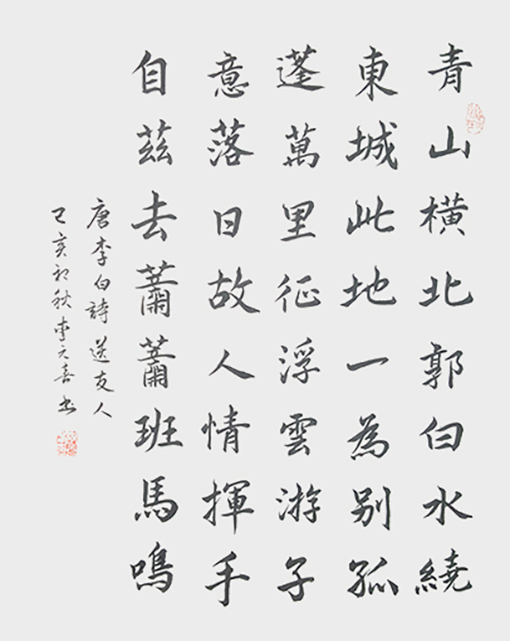 青山橫北郭白水繞
東城此地一為別孤
蓬萬里征浮雲游子
意落日故人情揮手
自茲去蕭蕭班馬鳴
唐李白詩送友人
己亥初秋李元喜书